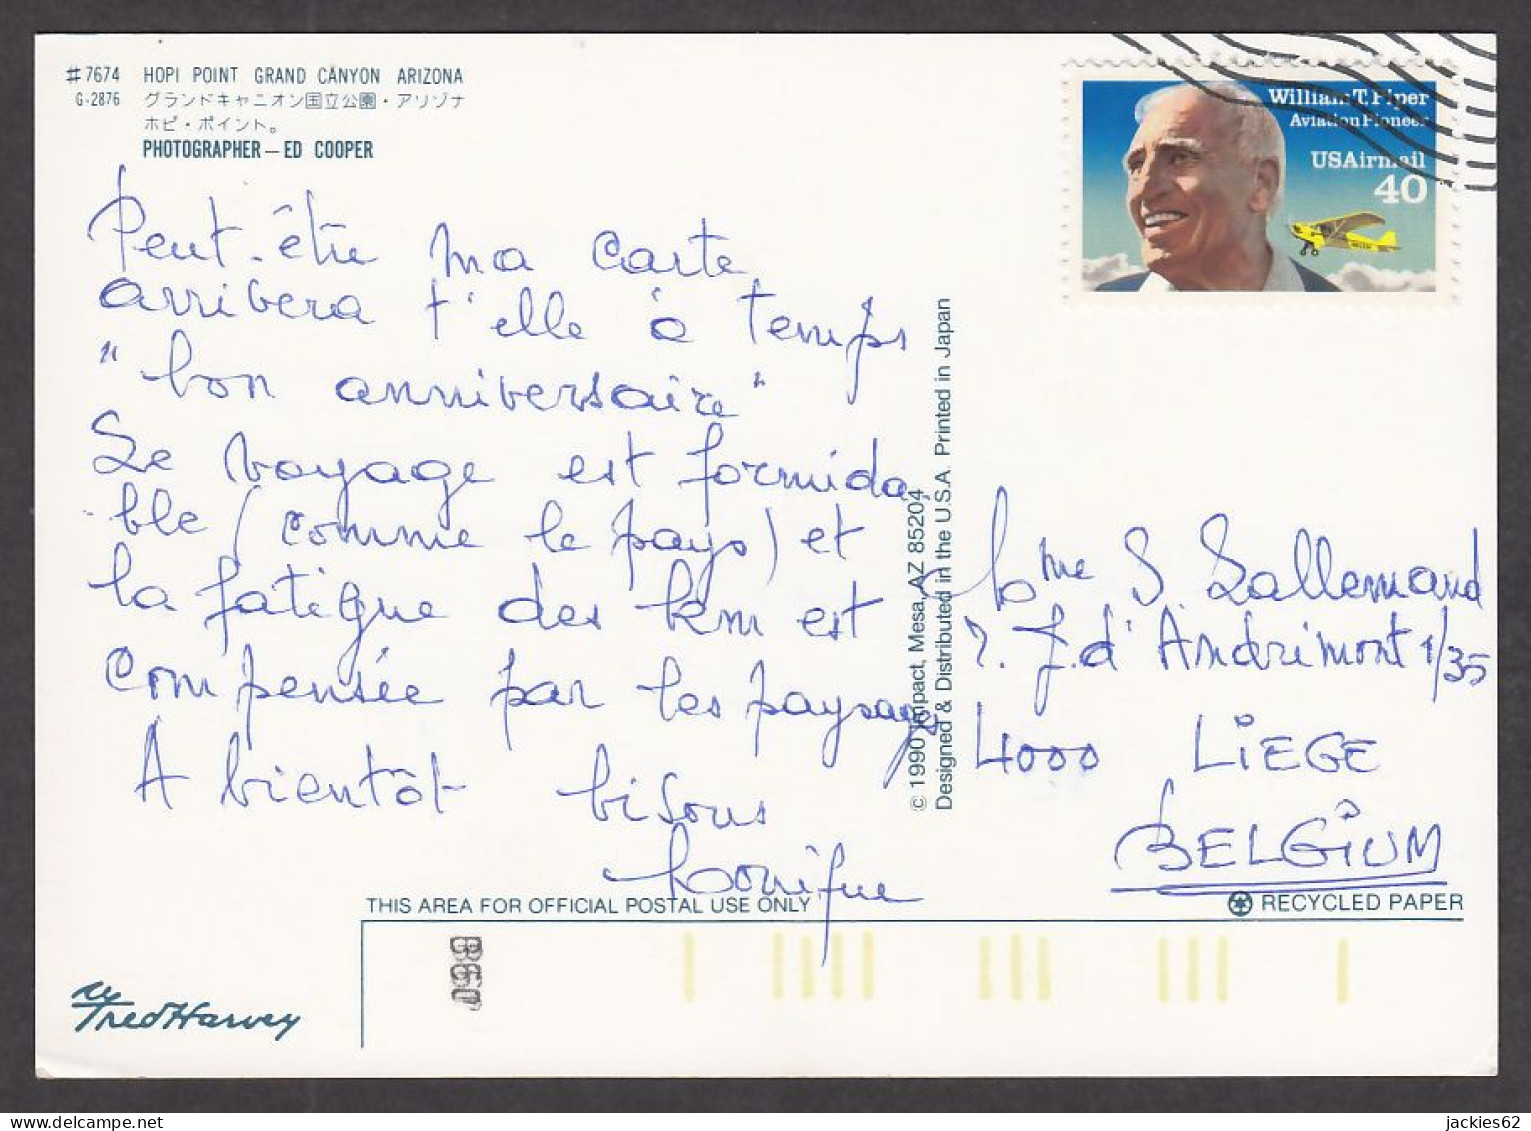 #7674 HOPI POINT GRAND CANYON ARIZONA
G-2876 グランドキャニオン国立公園・アリゾナ
ホピ・ポイント。
PHOTOGRAPHER — ED COOPER
William T. Piper
Aviation Pioneer
USAirmail
40
Peut-être ma carte
arrivera t'elle à temps
"bon anniversaire"
Le voyage est formida
ble (comme le pays) et
la fatigue des km est
compensée par les paysages
A bientôt bisous
Monique
© 1990 Impact, Mesa, AZ 85204
Designed & Distributed in the U.S.A. Printed in Japan
Mme S. Lallemand
r. J. d'Andrimont 1/35
4000 LIEGE
BELGIUM
THIS AREA FOR OFFICIAL POSTAL USE ONLY
RECYCLED PAPER
Fred Harvey
jackies62